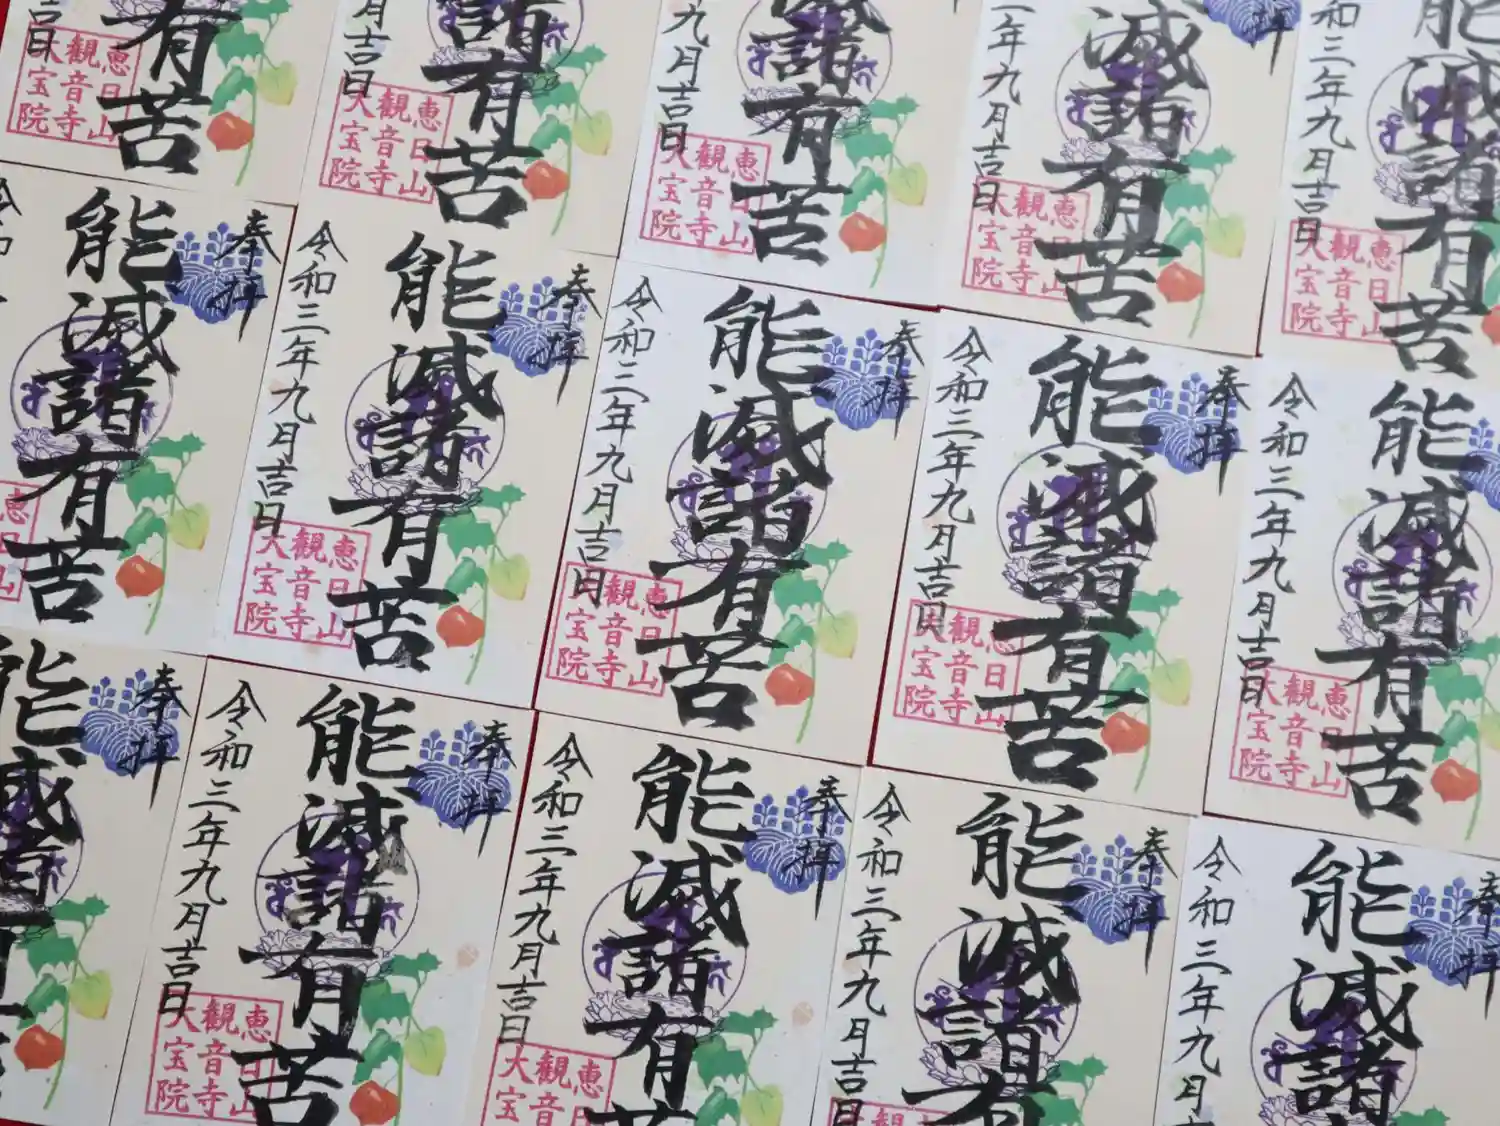 有苦
吉日
恵日山
観音寺
大宝院
諸有苦
月吉日
恵日山
観音寺
大宝院
諸有苦
九月吉日
恵日山
観音寺
大宝院
滅諸有苦
年九月吉日
恵日山
観音寺
大宝院
能滅諸有苦
和三年九月吉日
恵日山
観音寺
大宝院
奉拝
能滅諸有苦
恵日山
奉拝
能滅諸有苦
令和三年九月吉日
恵日山
観音寺
大宝院
奉拝
能滅諸有苦
令和三年九月吉日
恵日山
観音寺
大宝院
奉拝
能滅諸有苦
令和三年九月吉日
恵日山
観音寺
大宝院
能滅諸有苦
令和三年九月吉日
恵日山
観音寺
大宝院
奉拝
能滅諸
奉拝
能滅諸有苦
令和三年九月吉日
恵日山
観音寺
大宝院
奉拝
能滅諸有
令和三年九月吉日
恵日
観音
大宝
奉拝
能滅諸有
令和三年九月吉日
奉拝
能滅諸
令和三年九月